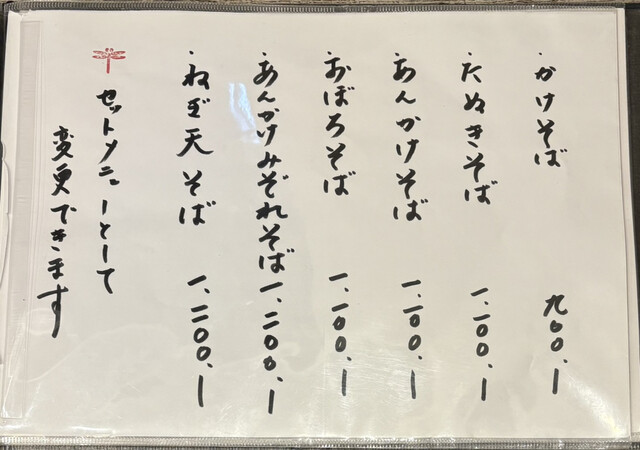 ・かけそば 九〇〇.ー
・たぬきそば 一、一〇〇.ー
・あんかけそば 一、一〇〇.ー
・おぼろそば 一、一〇〇.ー
・あんかけみぞれそば 一、二〇〇.ー
・ねぎ天そば 一、二〇〇.ー
セットメニューとして
変更できます